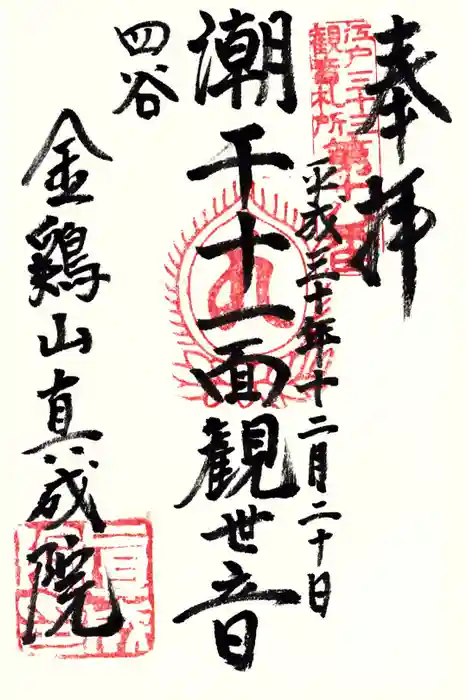 奉拝
江戸三十三
観音札所第十八番
平成三十年十二月二十日
潮干十一面観世音
四谷
金鷄山真成院